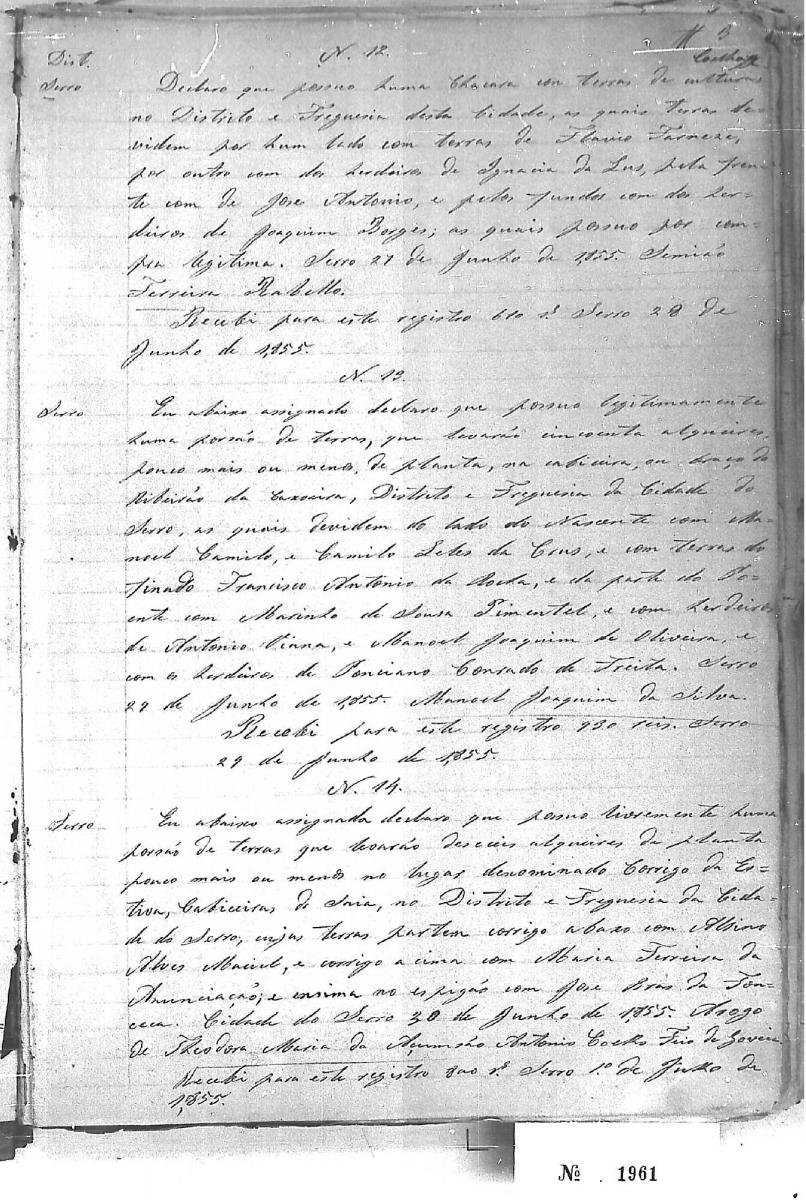 3
Coelho
Dist.
N. 12.
Serro
Declaro que possuo huma Chacara con terras de culturas
no Distrito e Freguesia desta Cidade, as quais terras de-
videm por hum lado com terras de Flavio Farneze,
por outro com dos herdeiros de Ignacia da Lus, pela fren-
te com de Jose Antonio, e pelos fundos com dos her-
deiros de Joaquim Borges; as quais possuo por com-
pra legitima. Serro 27 de Junho de 1,855. Semião
Ferreira Rabello.
Recebi para este registro 610 rs. Serro 28 de
Junho de 1,855.
N. 13.
Serro
Eu abaixo assignado declaro que possuo legitimamente
huma porsão de terras, que levarão cincoenta alqueires,
pouco mais ou menos, de planta, na cabiceira, ou braço do
Ribeirão da Caxoeira, Distrito e Freguesia da Cidade do
Serro, as quais devidem do lado do Nascente com Ma-
noel Camilo, e Camilo Leles da Crus, e com terras do
finado Francisco Antonio da Rocha, e da parte do Po-
ente com Marinho de Sousa Pimentel, e com herdeiros
de Antonio Viana, e Manoel Joaquim de Oliveira, e
com os herdeiros de Ponciano Conrado de Freita. Serro
29 de Junho de 1,855. Manoel Joaquim da Silva.
Recebi para este registro 930 reis. Serro
29 de Junho de 1,855.
N. 14.
Serro
Eu abaixo assignada declaro que possuo livremente huma
porsão de terras que levarão deseceis alqueires de planta
pouco mais ou menos no lugar denominado Corrigo da Es-
tiva, Cabiceiras do Saia, no Distrito e Freguesia da Cida-
de do Serro, cujas terras partem corrigo abaxo com Albino
Alves Maciel, e corrigo acima com Maria Ferreira da
Anunciação; e ensima no espigão com Jose Bras da Fon-
ceca. Cidade do Serro 30 de Junho de 1,855. Arogo
de Theodora Maria da Açumsão Antonio Coelho Feio de Goveia
Recebi para este registro rs. Serro 1.º de Julho de
1,855.
Nº 1961